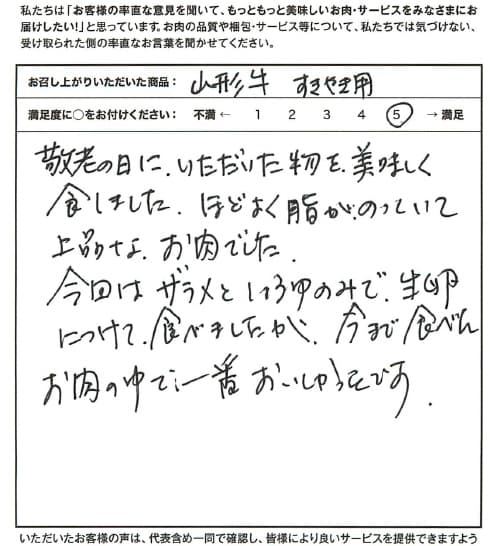 私たちは「お客様の率直な意見を聞いて、もっともっと美味しいお肉・サービスをみなさまにお
届けしたい!」と思っています。お肉の品質や梱包・サービス等について、私たちでは気づけない、
受け取られた側の率直なお言葉を聞かせてください。
お召し上がりいただいた商品: 山形牛 すきやき用
満足度に○をお付けください: 不満 ← 1 2 3 4 5 → 満足
敬老の日に、いただいた物を、美味しく
食しました。ほどよく脂が、のっていて
上品な、お肉でした。
今回はザラメとしょうゆのみで、生卵
につけて、食べましたが、今まで食べた
お肉の中で、一番おいしかったです。
いただいたお客様の声は、代表含め一同で確認し、皆様により良いサービスを提供できますよう